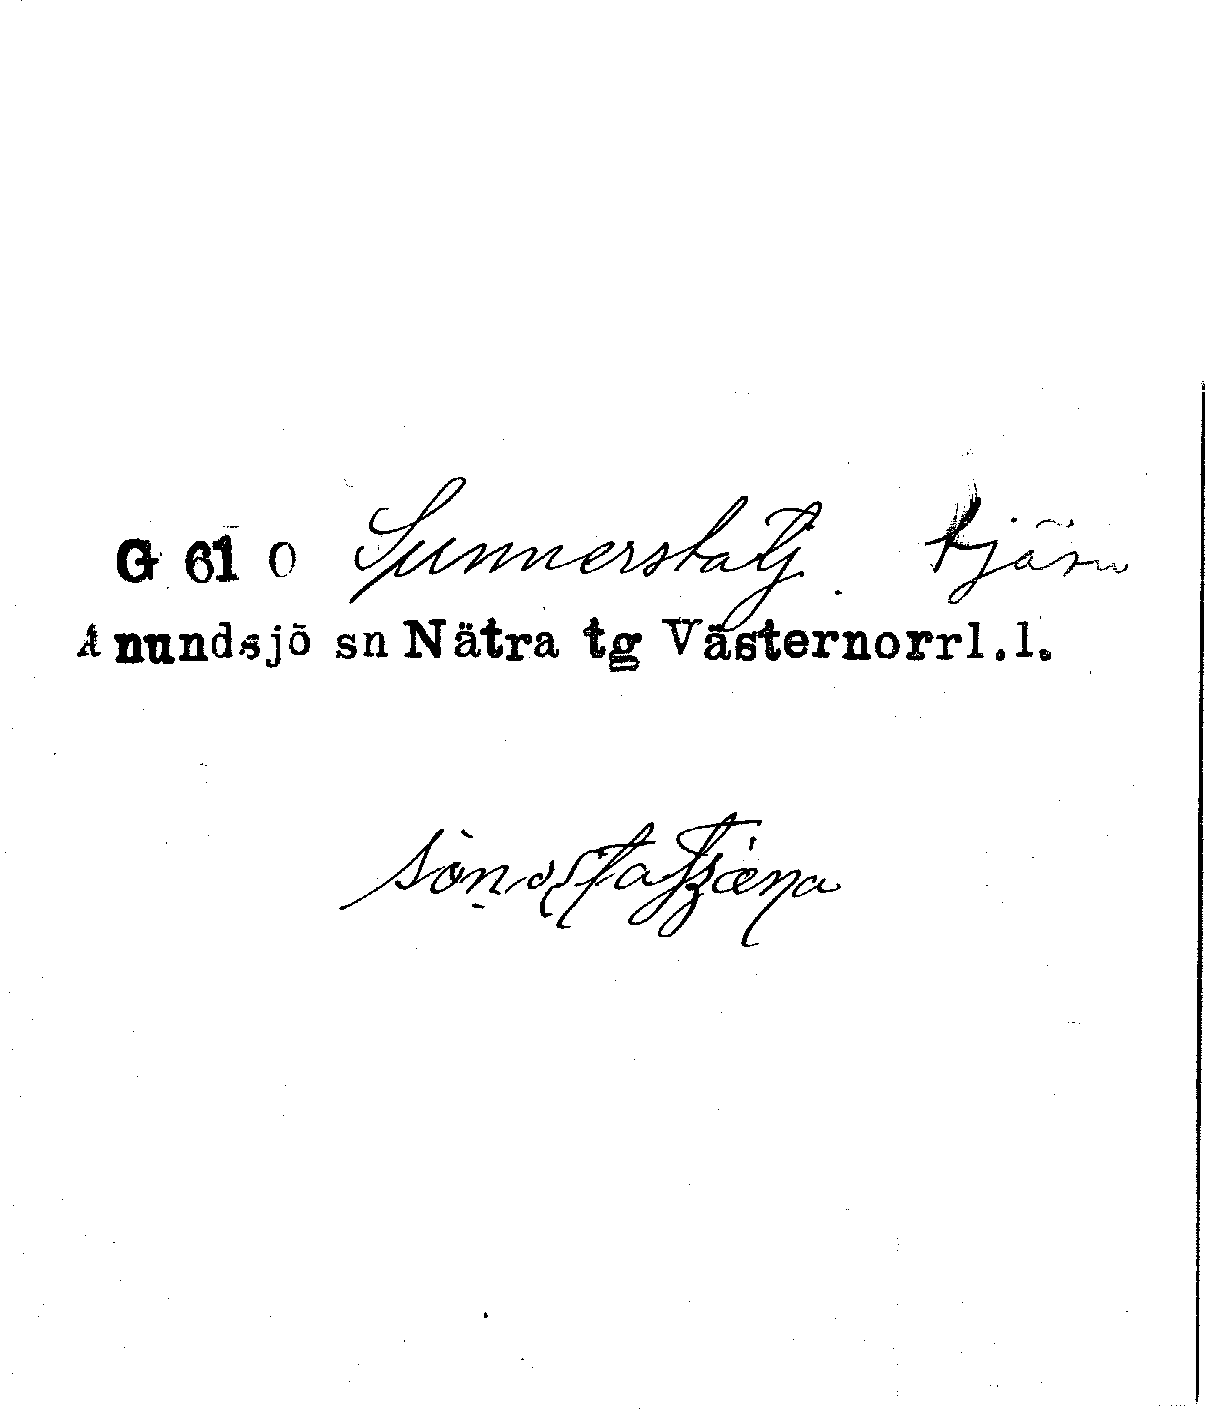 G 61 O Sunnerstatj. tjärn
Anundsjö sn Nätra tg Västernorrl.l.